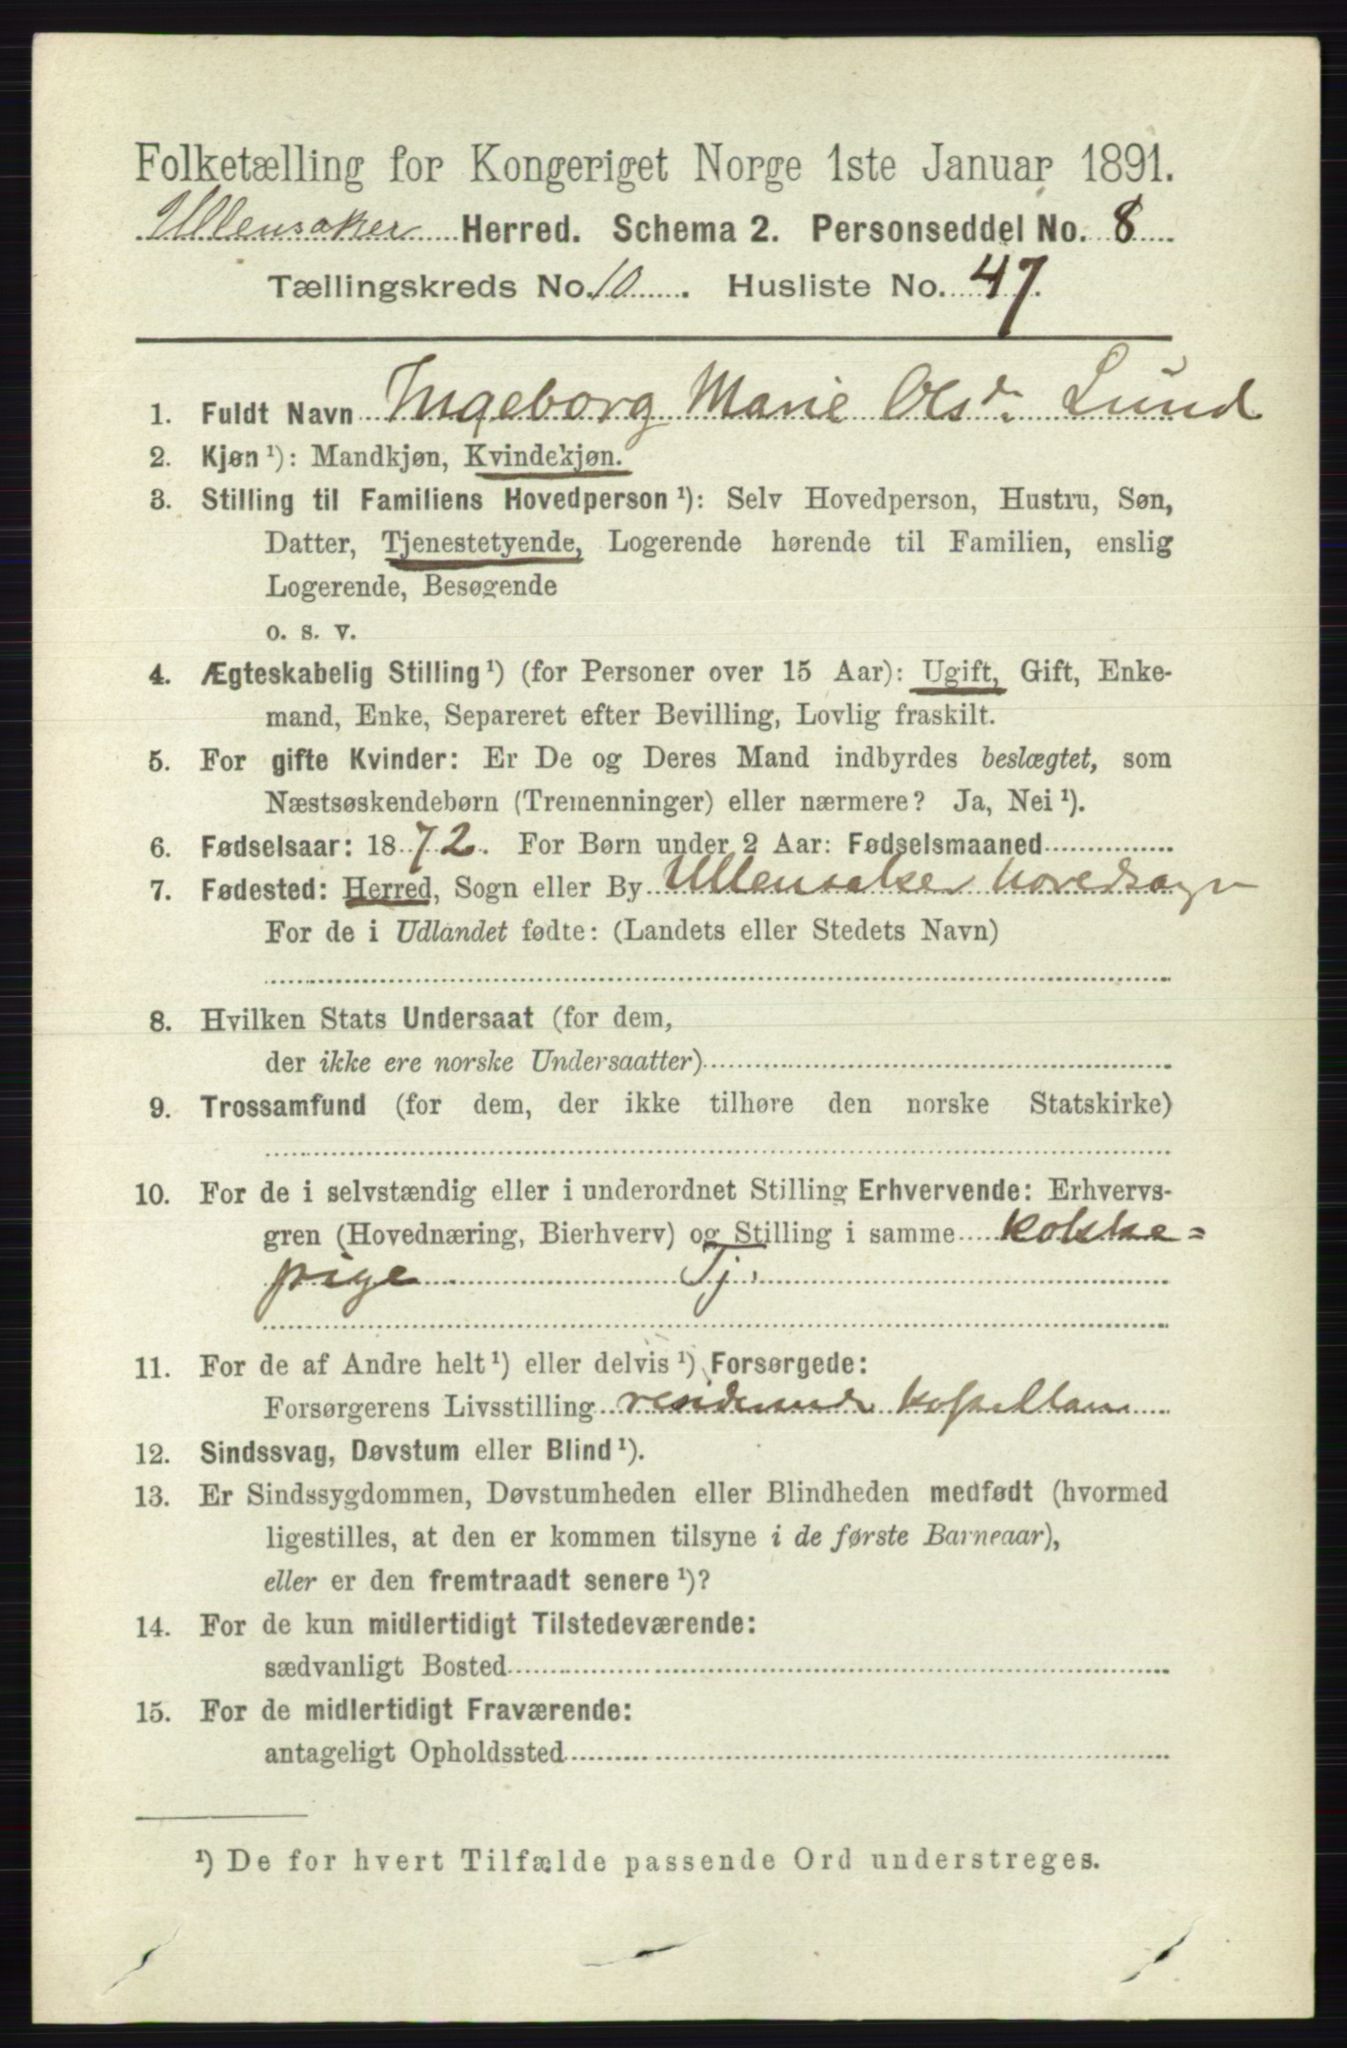 Folketælling for Kongeriget Norge 1ste Januar 1891.
Ullensaker Herred. Schema 2. Personseddel No. 8
Tællingskreds No. 10. Husliste No. 47.
1. Fuldt Navn Ingeborg Marie Olsdr Lund
2. Kjøn ¹): Mandkjøn, Kvindekjøn.
3. Stilling til Familiens Hovedperson ¹): Selv Hovedperson, Hustru, Søn,
Datter, Tjenestetyende, Logerende hørende til Familien, enslig
Logerende, Besøgende
o. s. v.
4. Ægteskabelig Stilling ¹) (for Personer over 15 Aar): Ugift, Gift, Enke-
mand, Enke, Separeret efter Bevilling, Lovlig fraskilt.
5. For gifte Kvinder: Er De og Deres Mand indbyrdes beslægtet, som
Næstsøskendebørn (Tremenninger) eller nærmere? Ja, Nei ¹).
6. Fødselsaar: 1872. For Børn under 2 Aar: Fødselsmaaned
7. Fødested: Herred, Sogn eller By Ullensaker hovedsogn
For de i Udlandet fødte: (Landets eller Stedets Navn)
8. Hvilken Stats Undersaat (for dem,
der ikke ere norske Undersaatter)
9. Trossamfund (for dem, der ikke tilhøre den norske Statskirke)
10. For de i selvstændig eller i underordnet Stilling Erhvervende: Erhvervs-
gren (Hovednæring, Bierhverv) og Stilling i samme kokke=
pige Tj.
11. For de af Andre helt ¹) eller delvis ¹) Forsørgede:
Forsørgerens Livsstilling residerende kapellan
12. Sindssvag, Døvstum eller Blind ¹).
13. Er Sindssygdommen, Døvstumheden eller Blindheden medfødt (hvormed
ligestilles, at den er kommen tilsyne i de første Barneaar),
eller er den fremtraadt senere ¹)?
14. For de kun midlertidigt Tilstedeværende:
sædvanligt Bosted
15. For de midlertidigt Fraværende:
antageligt Opholdssted
¹) De for hvert Tilfælde passende Ord understreges.